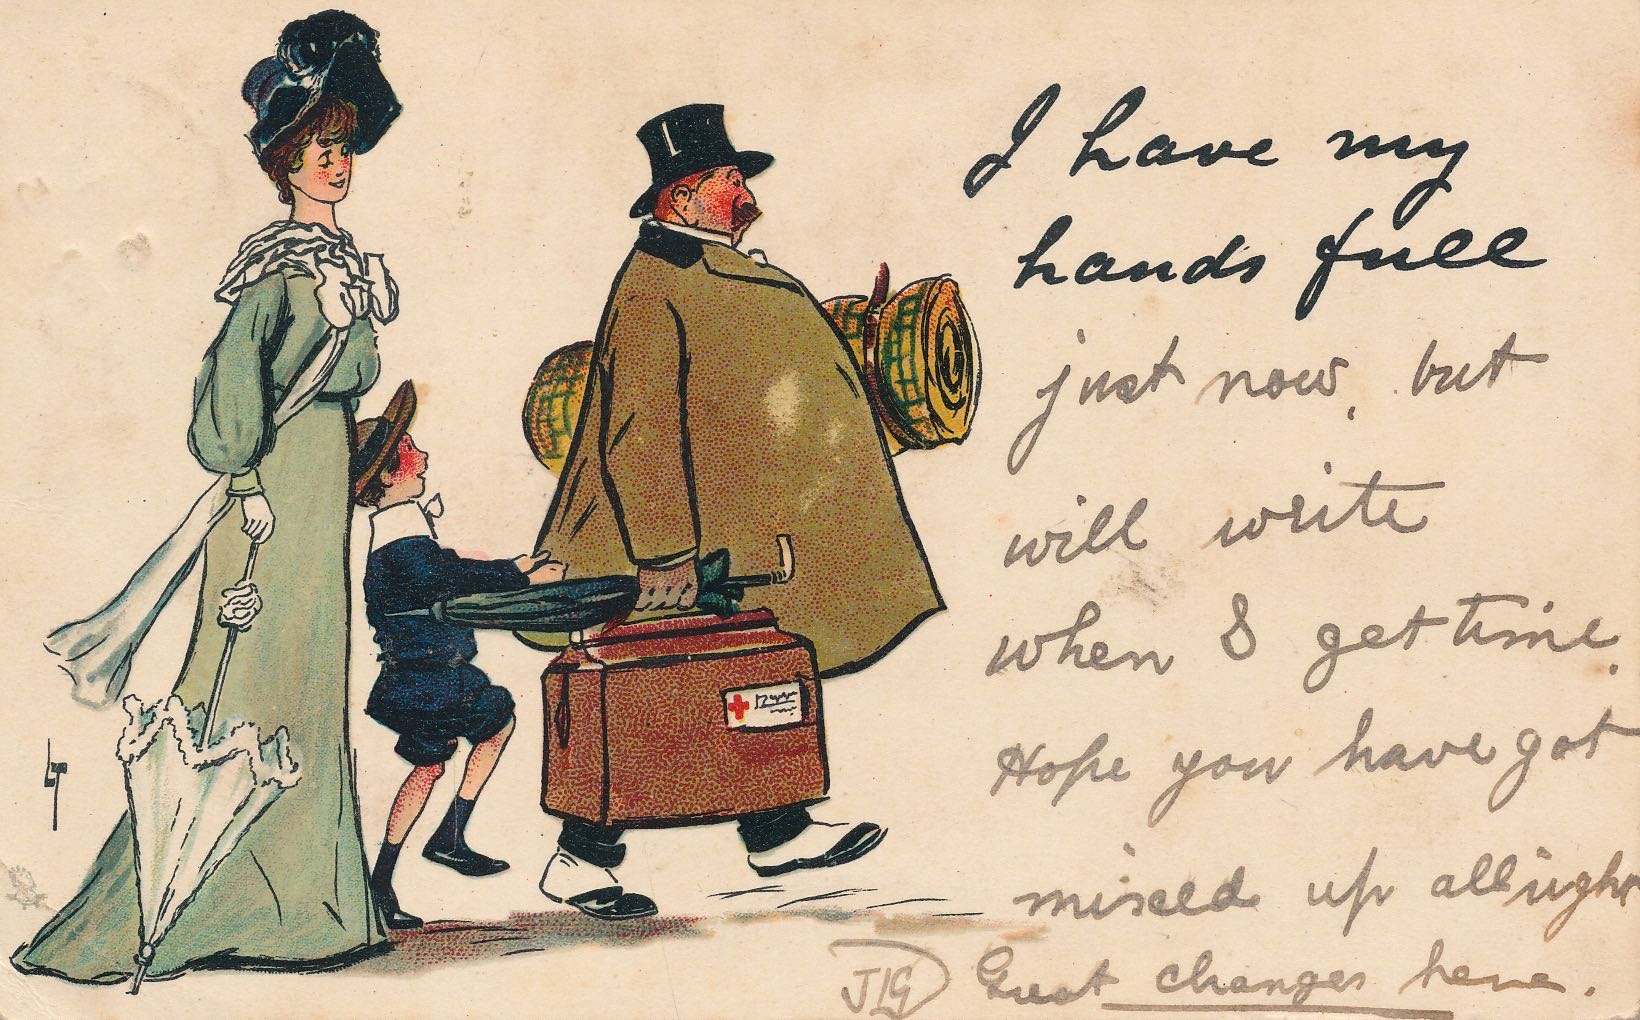 I have my
hands full
just now, but
will write
when I get time.
Hope you have got
mixed up allright
Great changes here.
JLG